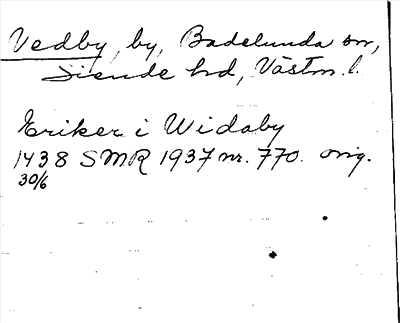 Vedby, by, Badelunda sn,
Siende hd, Västm. l.
Eriker i Widaby
1438 SMR 1937 nr. 770. orig.
30/6